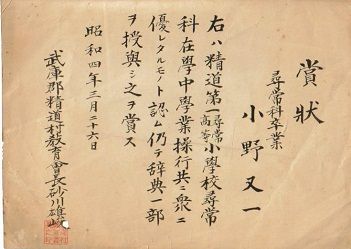 賞狀
尋常科卒業
小野又一
右ハ精道第一尋常高等小學校尋常
科在學中學業操行共ニ衆ニ
優レタルモノト認ム仍テ辞典一部
ヲ授與シ之ヲ賞ス
昭和四年三月二十六日
武庫郡精道村教育會長砂川雄峻